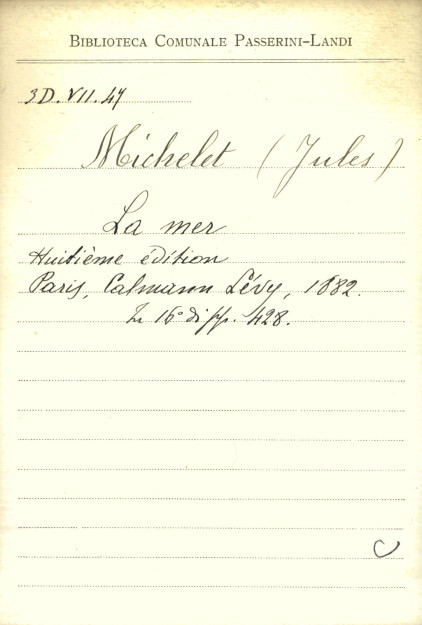 BIBLIOTECA COMUNALE PASSERINI-LANDI
3D.VII.47
Michelet (Jules)
La mer
Huitième édition
Paris, Calmann Lévy, 1882.
In 16° di pp. 428.
C